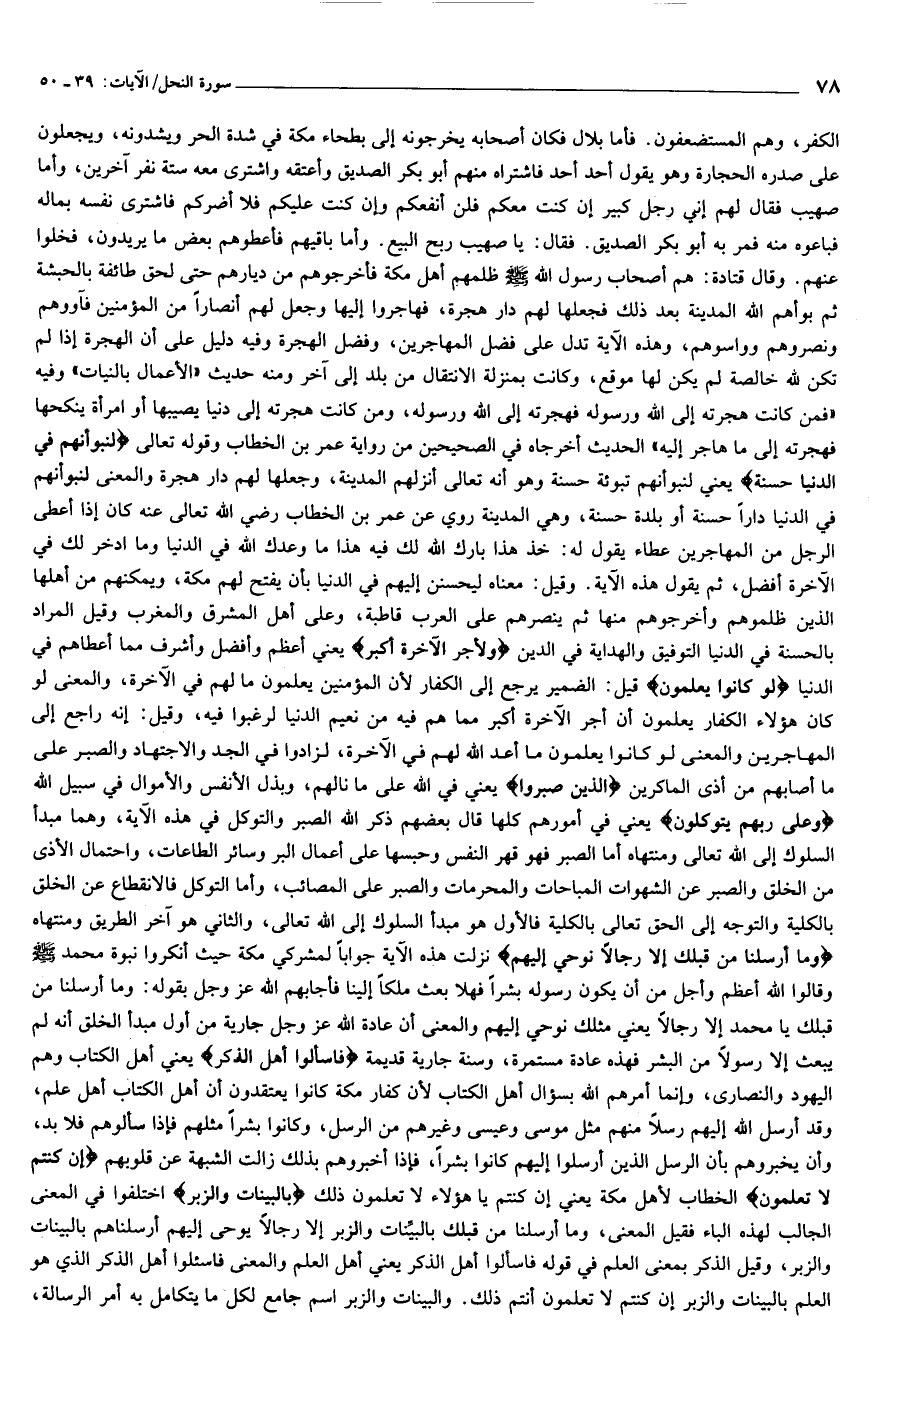 ٧٨ سورة النحل/ الآيات: ٣٩ ـ ٥٠
الكفر، وهم المستضعفون. فأما بلال فكان أصحابه يخرجونه إلى بطحاء مكة في شدة الحر ويشدونه، ويجعلون
على صدره الحجارة وهو يقول أحد أحد فاشتراه منهم أبو بكر الصديق وأعتقه واشترى معه ستة نفر آخرين، وأما
صهيب فقال لهم إني رجل كبير إن كنت معكم فلن أنفعكم وإن كنت عليكم فلا أضركم فاشترى نفسه بماله
فباعوه منه فمر به أبو بكر الصديق. فقال: يا صهيب ربح البيع. وأما باقيهم فأعطوهم بعض ما يريدون، فخلوا
عنهم. وقال قتادة: هم أصحاب رسول الله ﷺ ظلمهم أهل مكة فأخرجوهم من ديارهم حتى لحق طائفة بالحبشة
ثم بوأهم الله المدينة بعد ذلك فجعلها لهم دار هجرة، فهاجروا إليها وجعل لهم أنصاراً من المؤمنين فآووهم
ونصروهم وواسوهم، وهذه الآية تدل على فضل المهاجرين، وفضل الهجرة وفيه دليل على أن الهجرة إذا لم
تكن لله خالصة لم يكن لها موقع، وكانت بمنزلة الانتقال من بلد إلى آخر ومنه حديث «الأعمال بالنيات» وفيه
«فمن كانت هجرته إلى الله ورسوله فهجرته إلى الله ورسوله، ومن كانت هجرته إلى دنيا يصيبها أو امرأة ينكحها
فهجرته إلى ما هاجر إليه» الحديث أخرجاه في الصحيحين من رواية عمر بن الخطاب وقوله تعالى ﴿لنبوأنهم في
الدنيا حسنة﴾ يعني لنبوأنهم تبوئة حسنة وهو أنه تعالى أنزلهم المدينة، وجعلها لهم دار هجرة والمعنى لنبوأنهم
في الدنيا داراً حسنة أو بلدة حسنة، وهي المدينة روي عن عمر بن الخطاب رضي الله تعالى عنه كان إذا أعطى
الرجل من المهاجرين عطاء يقول له: خذ هذا بارك الله لك فيه هذا ما وعدك الله في الدنيا وما ادخر لك في
الآخرة أفضل، ثم يقول هذه الآية. وقيل: معناه ليحسنن إليهم في الدنيا بأن يفتح لهم مكة، ويمكنهم من أهلها
الذين ظلموهم وأخرجوهم منها ثم ينصرهم على العرب قاطبة، وعلى أهل المشرق والمغرب وقيل المراد
بالحسنة في الدنيا التوفيق والهداية في الدين ﴿ولأجر الآخرة أكبر﴾ يعني أعظم وأفضل وأشرف مما أعطاهم في
الدنيا ﴿لو كانوا يعلمون﴾ قيل: الضمير يرجع إلى الكفار لأن المؤمنين يعلمون ما لهم في الآخرة، والمعنى لو
كان هؤلاء الكفار يعلمون أن أجر الآخرة أكبر مما هم فيه من نعيم الدنيا لرغبوا فيه، وقيل: إنه راجع إلى
المهاجرين والمعنى لو كانوا يعلمون ما أعد الله لهم في الآخرة، لزادوا في الجد والاجتهاد والصبر على
ما أصابهم من أذى الماكرين ﴿الذين صبروا﴾ يعني في الله على ما نالهم، وبذل الأنفس والأموال في سبيل الله
﴿وعلى ربهم يتوكلون﴾ يعني في أمورهم كلها قال بعضهم ذكر الله الصبر والتوكل في هذه الآية، وهما مبدأ
السلوك إلى الله تعالى ومنتهاه أما الصبر فهو قهر النفس وحبسها على أعمال البر وسائر الطاعات، واحتمال الأذى
من الخلق والصبر عن الشهوات المباحات والمحرمات والصبر على المصائب، وأما التوكل فالانقطاع عن الخلق
بالكلية والتوجه إلى الحق تعالى بالكلية فالأول هو مبدأ السلوك إلى الله تعالى، والثاني هو آخر الطريق ومنتهاه
﴿وما أرسلنا من قبلك إلا رجالاً نوحي إليهم﴾ نزلت هذه الآية جواباً لمشركي مكة حيث أنكروا نبوة محمد ﷺ
وقالوا الله أعظم وأجل من أن يكون رسوله بشراً فهلا بعث ملكاً إلينا فأجابهم الله عز وجل بقوله: وما أرسلنا من
قبلك يا محمد إلا رجالاً يعني مثلك نوحي إليهم والمعنى أن عادة الله عز وجل جارية من أول مبدأ الخلق أنه لم
يبعث إلا رسولاً من البشر فهذه عادة مستمرة، وسنة جارية قديمة ﴿فاسألوا أهل الذكر﴾ يعني أهل الكتاب وهم
اليهود والنصارى، وإنما أمرهم الله بسؤال أهل الكتاب لأن كفار مكة كانوا يعتقدون أن أهل الكتاب أهل علم،
وقد أرسل الله إليهم رسلاً منهم مثل موسى وعيسى وغيرهم من الرسل، وكانوا بشراً مثلهم فإذا سألوهم فلا بد،
وأن يخبروهم بأن الرسل الذين أرسلوا إليهم كانوا بشراً، فإذا أخبروهم بذلك زالت الشبهة عن قلوبهم ﴿إن كنتم
لا تعلمون﴾ الخطاب لأهل مكة يعني إن كنتم يا هؤلاء لا تعلمون ذلك ﴿بالبينات والزبر﴾ اختلفوا في المعنى
الجالب لهذه الباء فقيل المعنى، وما أرسلنا من قبلك بالبيِّنات والزبر إلا رجالاً يوحى إليهم أرسلناهم بالبينات
والزبر، وقيل الذكر بمعنى العلم في قوله فاسألوا أهل الذكر يعني أهل العلم والمعنى فاسئلوا أهل الذكر الذي هو
العلم بالبينات والزبر إن كنتم لا تعلمون أنتم ذلك. والبينات والزبر اسم جامع لكل ما يتكامل به أمر الرسالة،